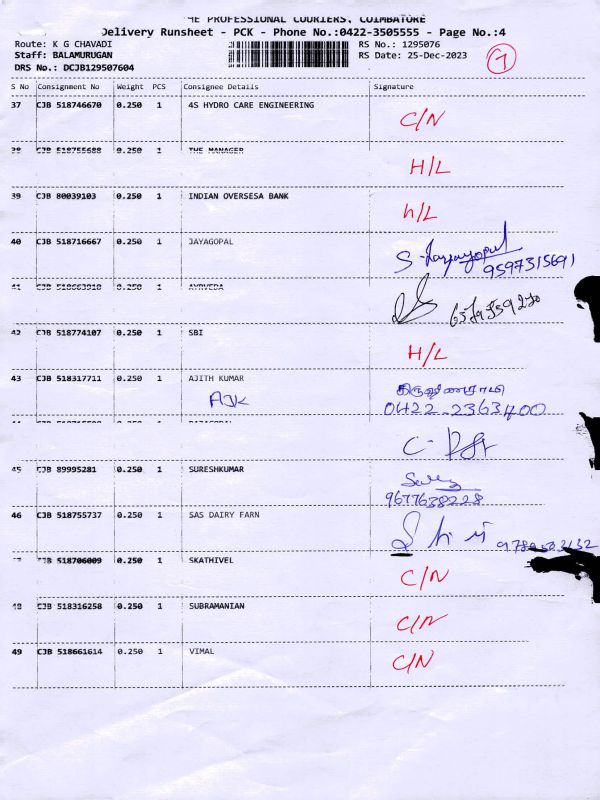 THE PROFESSIONAL COURIERS, COIMBATORE
Delivery Runsheet - PCK - Phone No.:0422-3505555 - Page No.:4
Route: K G CHAVADI RS No.: 1295076
Staff: BALAMURUGAN RS Date: 25-Dec-2023
DRS No.: DCJB129507604
7
S No Consignment No Weight PCS Consignee Details Signature
37 CJB 518746670 0.250 1 4S HYDRO CARE ENGINEERING C/N
38 CJB 518755688 0.250 1 THE MANAGER H/L
39 CJB 80039103 0.250 1 INDIAN OVERSESA BANK h/L
40 CJB 518716667 0.250 1 JAYAGOPAL S. Jayagopal
9597315691
41 CJB 518663910 0.250 1 AYRVEDA
42 CJB 518774107 0.250 1 SBI H/L
43 CJB 518317711 0.250 1 AJITH KUMAR
AJK 0422-2363400
RAJAGOPAL
45 CJB 89995281 0.250 1 SURESHKUMAR
9677638228
46 CJB 518755737 0.250 1 SAS DAIRY FARN
47 CJB 518706009 0.250 1 SKATHIVEL C/N
48 CJB 518316258 0.250 1 SUBRAMANIAN C/N
49 CJB 518661614 0.250 1 VIMAL C/N